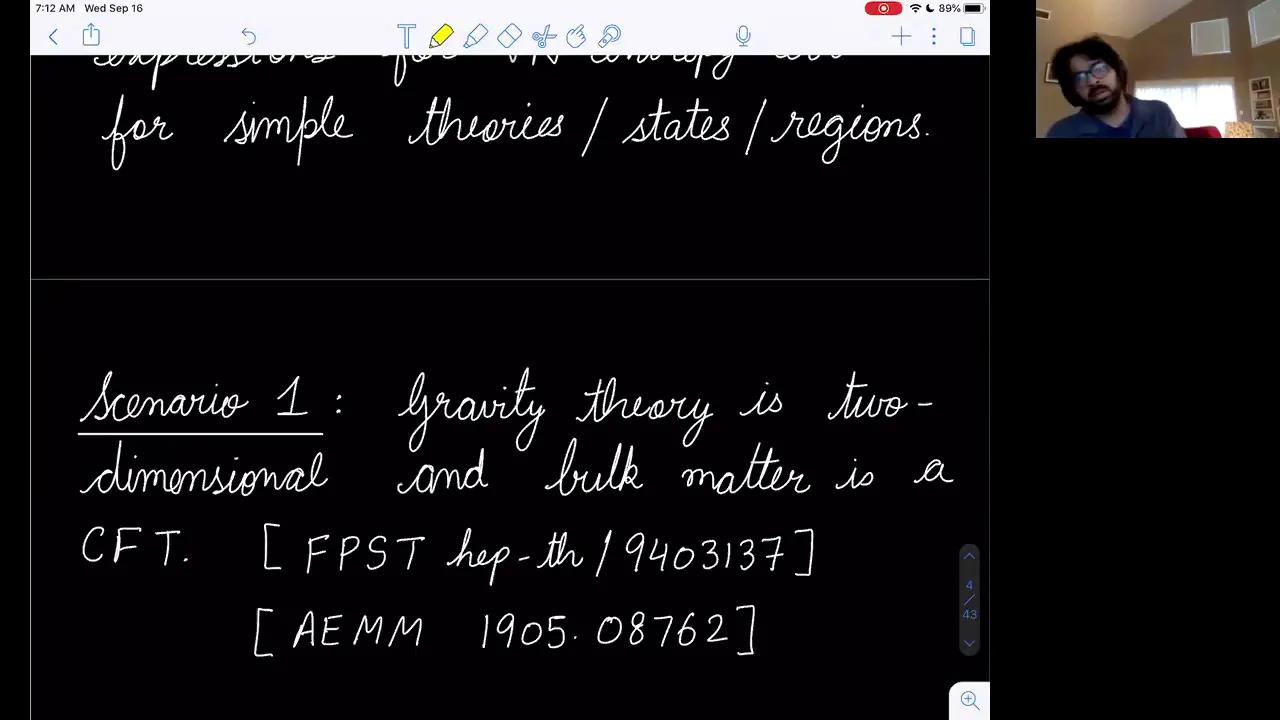 7:12 AM Wed Sep 16 89%
T
expressions for
for simple theories / states / regions.
Scenario 1 : Gravity theory is two-
dimensional and bulk matter is a
CFT. [ FPST hep-th / 9403137 ]
[ AEMM 1905.08762 ]
4
/
43